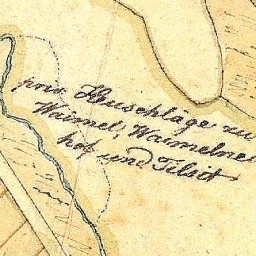 priv. Heuschläge zu
Waimel, Waimelnei
hof und Tilsit